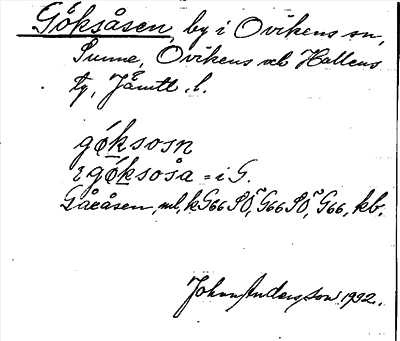 Göksåsen, by i Ovikens sn,
Sunne, Ovikens och Hallens
tg, Jämtl. l.
gǿksosn
i gǿksosa = i G.
Gåcåsen, ml, k G66 SÖ, G66 SÖ, G66, kb.
Johan Andersson 1922.